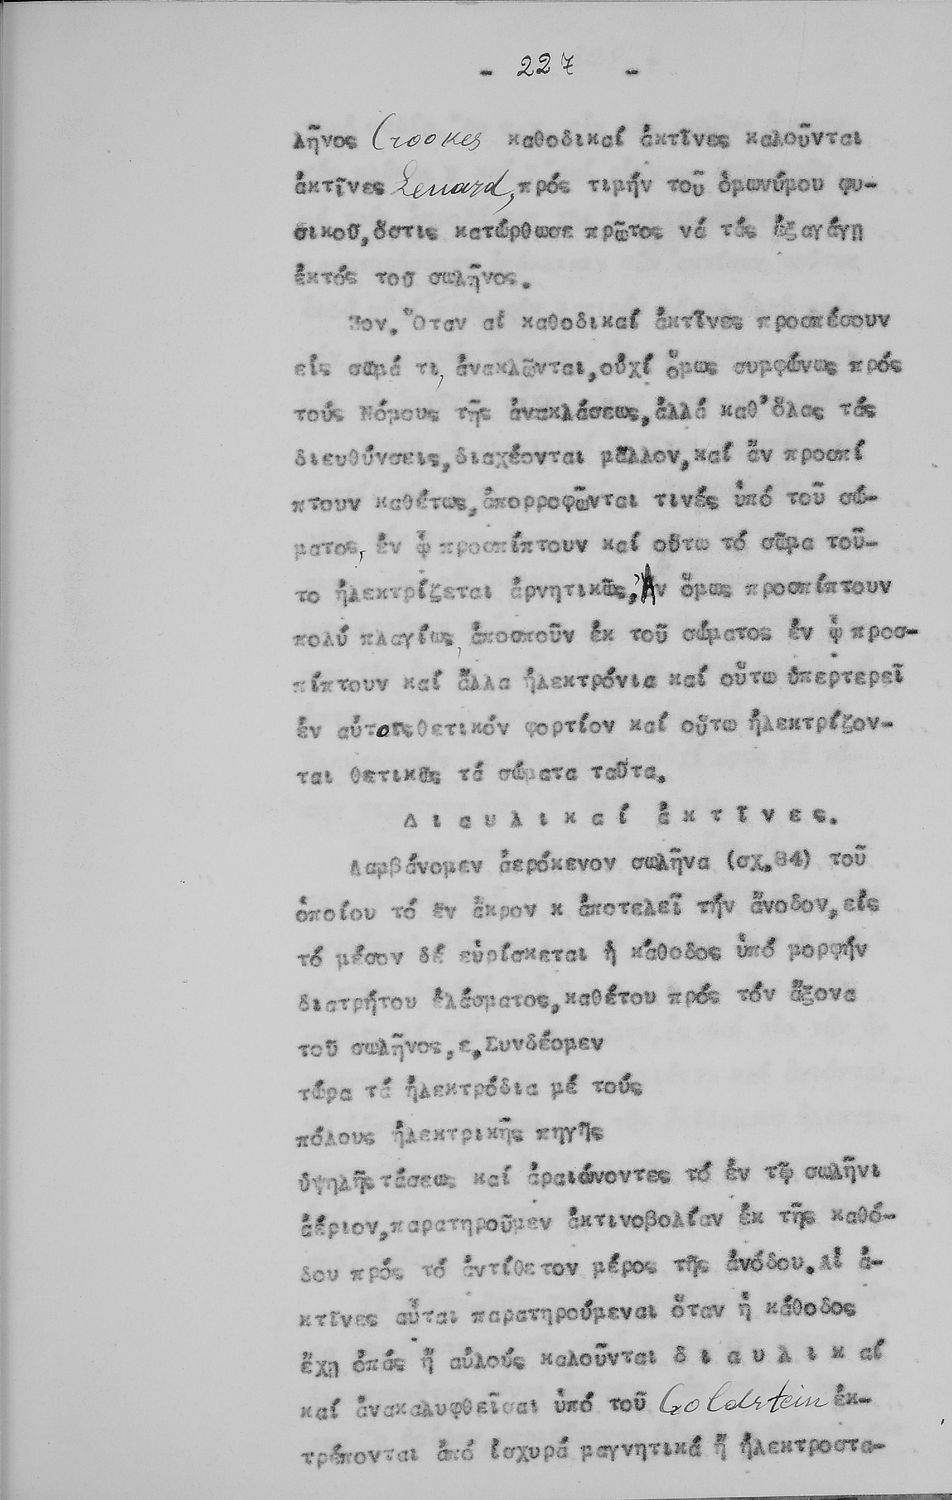 - 227 -
λῆνος Crookes καθοδικαί ἀκτῖνες καλοῦνται
ἀκτῖνες Lenard, πρός τιμήν τοῦ ὁμωνύμου φυ-
σικοῦ, ὅστις κατώρθωσε πρῶτος νά τάς ἐξαγάγῃ
ἐκτός τοῦ σωλῆνος.
Ὅταν αἱ καθοδικαί ἀκτῖνες προσπέσουν
εἰς σῶμά τι, ἀνακλῶνται, οὐχί ὅμως συμφώνως πρός
τούς Νόμους τῆς ἀνακλάσεως, ἀλλά καθ' ὅλας τάς
διευθύνσεις, διαχέονται μᾶλλον, καί ἄν προσπί
πτουν καθέτως, ἀπορροφῶνται τινές ὑπό τοῦ σώ-
ματος, ἐν ᾧ προσπίπτουν καί οὕτω τό σῶμα τοῦ-
το ἠλεκτρίζεται ἀρνητικῶς, Ἄν ὅμως προσπίπτουν
πολύ πλαγίως, ἀποσποῦν ἐκ τοῦ σώματος ἐν ᾧ προσ-
πίπτουν καί ἄλλα ἠλεκτρόνια καί οὕτω ὑπερτερεῖ
ἐν αὐτο θετικόν φορτίον καί οὕτω ἠλεκτρίζον-
ται θετικῶς τά σώματα ταῦτα.
Δ ι α υ λ ι κ α ί ἀ κ τ ῖ ν ε ς.
Λαμβάνομεν ἀερόκενον σωλῆνα (σχ. 84) τοῦ
ὁποίου τό ἕν ἄκρον κ ἀποτελεῖ τήν ἄνοδον, εἰς
τό μέσον δέ εὑρίσκεται ἡ κάθοδος ὑπό μορφήν
διατρήτου ἐλάσματος, καθέτου πρός τόν ἄξονα
τοῦ σωλῆνος, ε, Συνδέομεν
τώρα τά ἠλεκτρόδια μέ τούς
πόλους ἠλεκτρικῆς πηγῆς
ὑψηλῆς τάσεως καί ἀραιώνοντες τό ἐν τῷ σωλῆνι
ἀέριον, παρατηροῦμεν ἀκτινοβολίαν ἐκ τῆς καθό-
δου πρός τό ἀντίθετον μέρος τῆς ἀνόδου. Αἱ ἀ-
κτῖνες αὗται παρατηρούμεναι ὅταν ἡ κάθοδος
ἔχῃ ὀπάς ἤ αὐλούς καλοῦνται δ ι α υ λ ι κ αί
καί ἀνακαλυφθεῖσαι ὑπό τοῦ Goldstein ἐκ-
τρέπονται ἀπό ἰσχυρά μαγνητικά ἤ ἠλεκτροστα-